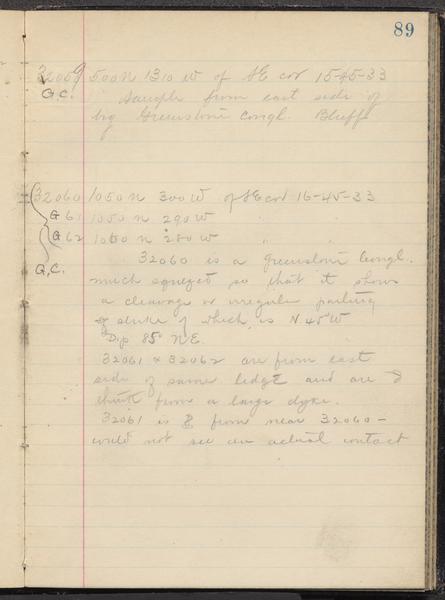 89
32059 500 N 1310 W of SE cor 15-45-33
G.C. Sample from east side of
big Greenstone Congl. Bluff
32060 1050 N 300 W of SE cor 16-45-33
G 61 1050 N 290 W " "
G 62 1050 N 280 W " "
32060 is a greenstone Congl.
G.C.
much squeezed so that it shows
a cleavage or irregular parting
strike of which is N 45° W
Dip 85° N E.
32061 & 32062 are from east
side of same ledge and are I
think from a large dyke.
32061 is from near 32060 –
could not see an actual contact